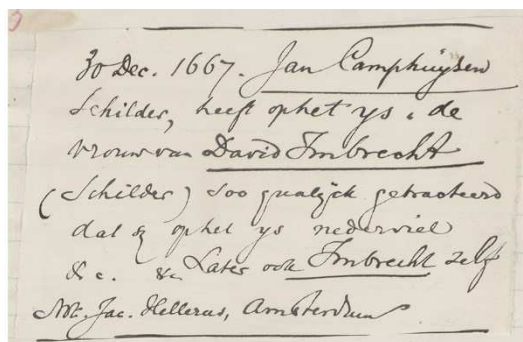 30 Dec. 1667. Jan Camphuysen
Schilder, heeft ophet ys, de
vrouw van David Imbrecht
(Schilder) soo qualijck getracteerd
dat sij ophet ys nederviel
&c. &c Later ook Imbrecht zelf
Not. Jac. Hellerus, Amsterdam